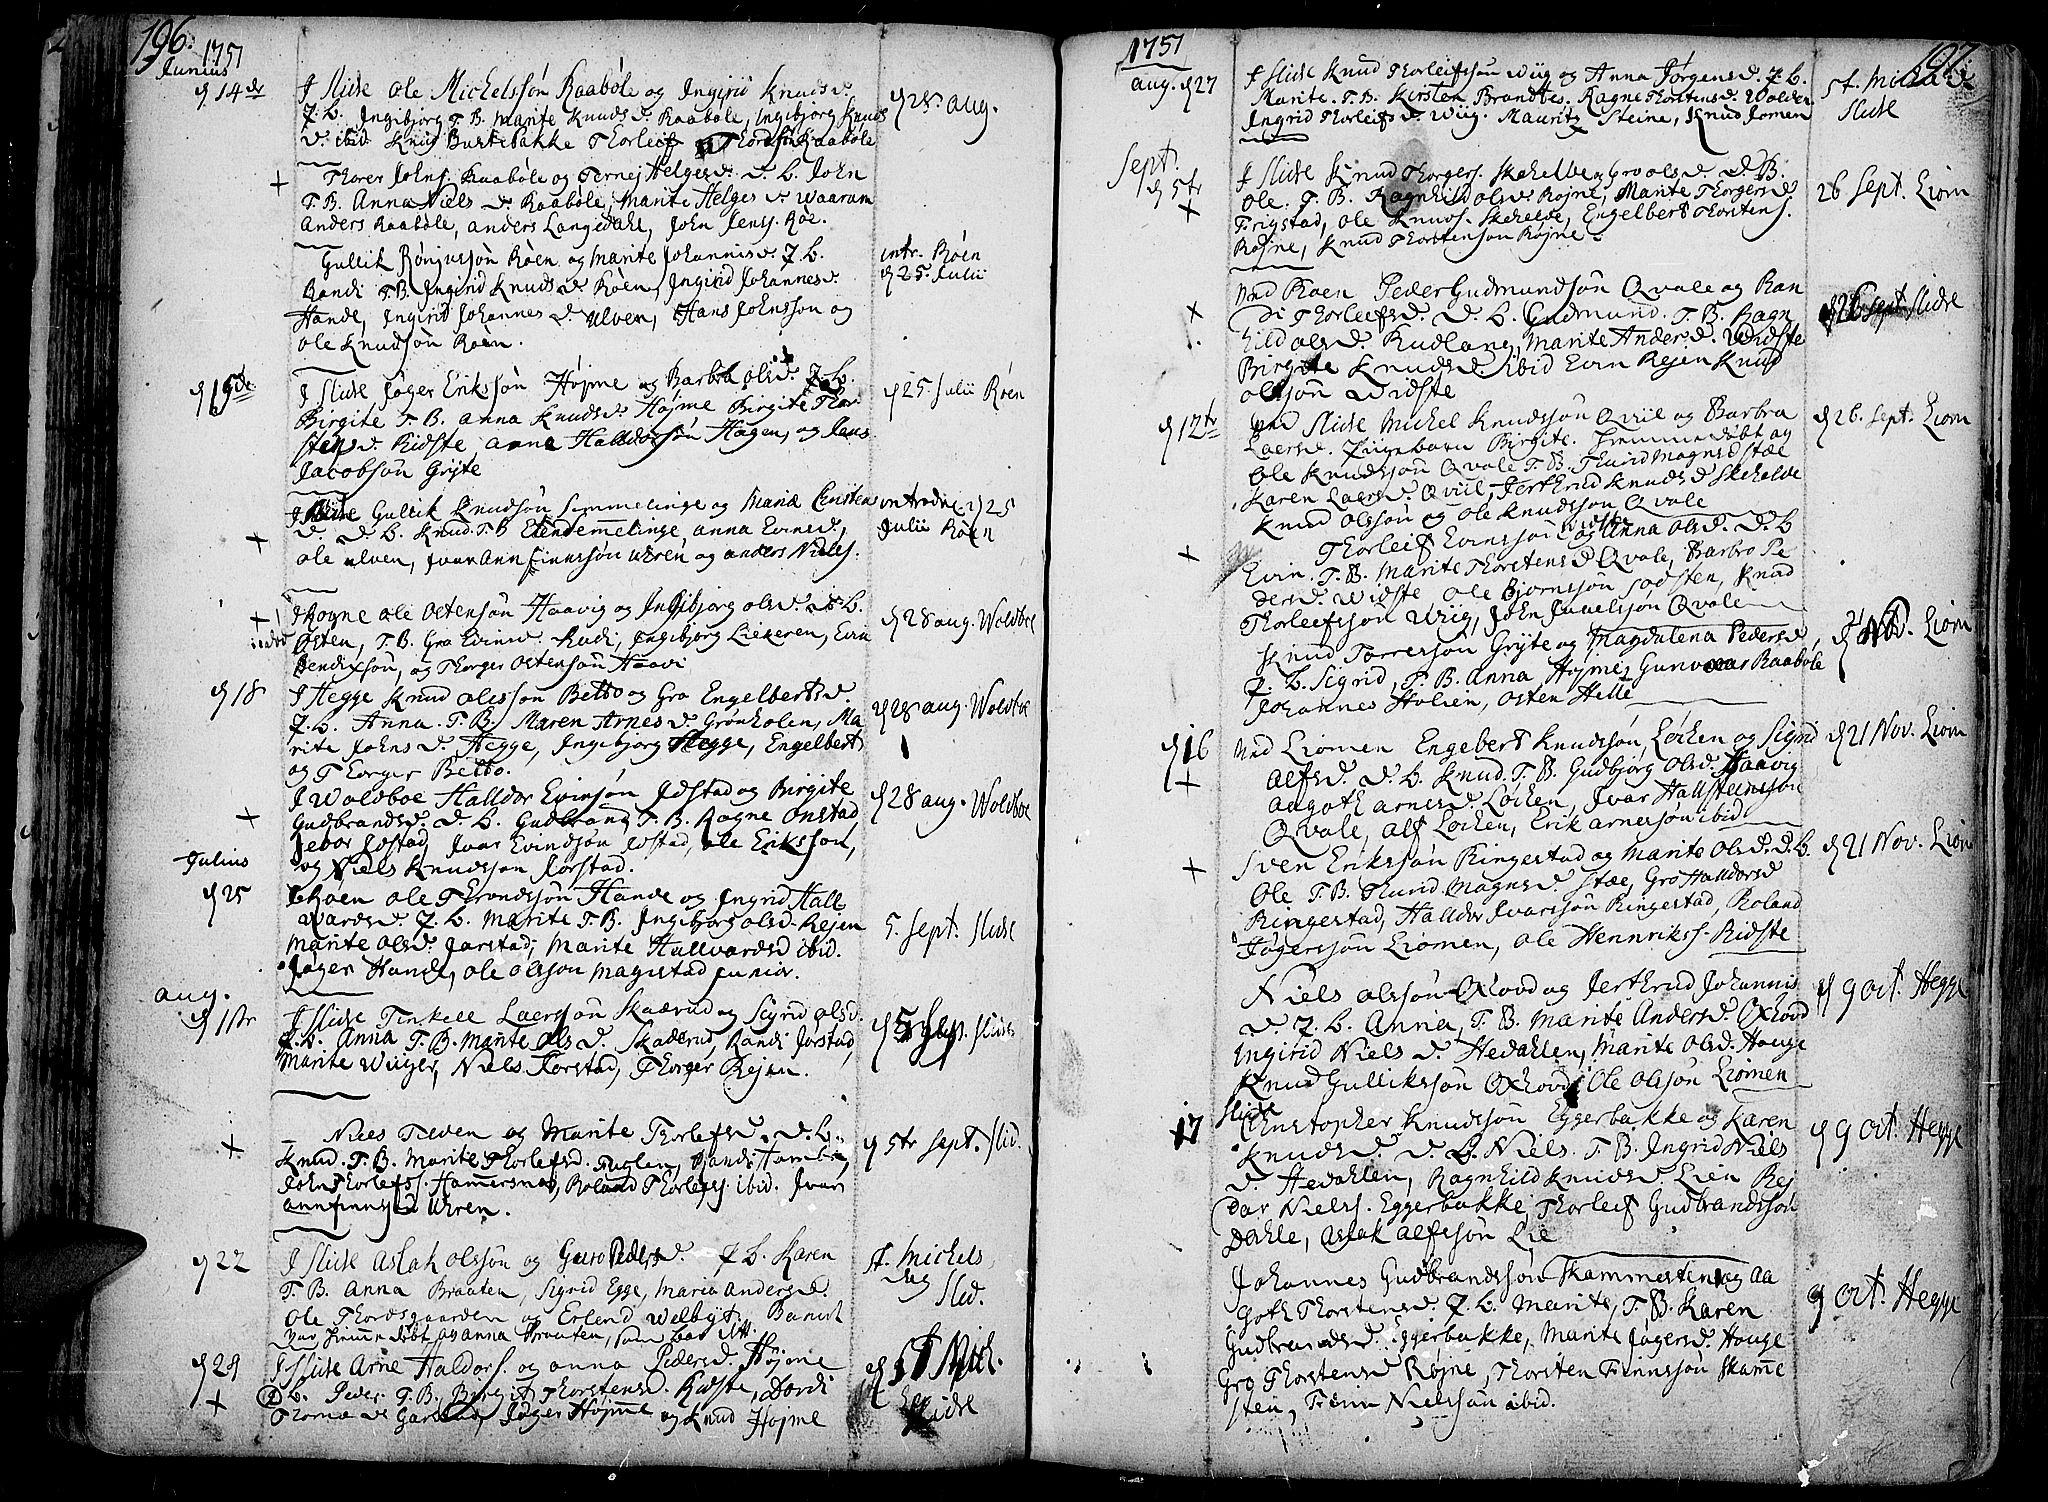 196.
1757
Junius
d 14de
J Slidre Ole Michelssön Raaböle og Ingirid Knudsd.
J. L. Ingibjorg T. B. Marite Knudsd. Raaböle, Ingibjorg Knuds
d. ibid Knud Burtebakke Thorleif Raaböle
d 28 aug.
+
Thorer Johns. Raaböle og Ternej Helgesd. d. L. John
T. B. Anna Niels d. Raaböle, Marite Helges d. Waaram
Anders Raaböle, Anders Langedahl, John Jens. Röe.
Gullik Röngussön Röen og Marite Johannisd. J. L.
Randi T. B. Ingirid Knudsd. Röen, Ingirid Johannesd.
Hande, Ingirid Johannes d. Ulven, Hans Johnssön og
Ole Knudsön Röen.
intr. Röen
d 25. Julii
d 15de
J Slidre Jöger Erikssön Höjme og Barbra olsd. J. L.
Birgite T. B. Anna Knudsd. Höjme Birgite Thor
stensd. Ridste, Arne Halldorsön Hagen, og Jens
Jacobsön Gryte
d 25. Julii Röen
+
J Slidre Gullik Knudsön Semmelinge og Maria Christens
d. d. L. Knud. T. B. Semmelinge, Anna Evinsd.
Ole Ulven, Ivar Ann Finnssön Uren og Anders Niels.
introduc. d 25
Julii Röen
+
J Rogne Ole Ostensön Haavig og Ingibjorg olsd. d. L.
Osten, T. B. Gro Evinsd. Rudi, Ingibjorg Liekeren, Evin
Bendixsön, og Thorger Ostensön Haavi
d 28 aug. Woldboe
d 18
J Hegge Knud olssön Betto og Gro Engelbertsd.
J. L. Anna. T. B. Maren Arnes d. Grönholen, Ma
rite Johns d. Hegge, Ingibjorg Hegge, Engelbert
og Thorger Betto.
d 28 aug. Woldboe
+
J Woldboe Halldor Evinsön Jdstad og Birgite
Gudbrandsd. d. L. Gudbrand, T. B. Ragne Onstad
Jebor Jostad, Ivar Evindsön Jostad, Ole Erikssön,
og Niels Knudssön Jorstad.
d 28 aug. Woldboe
Julius
d 25
J Röen Ole Throndssön Hande og Ingrid Hall
wardsd. J. L. Marite T. B. Ingibjorg olsd. Rejen
Marite olsd. Jarstad, Marite Hallvardsd ibid.
Jöger Hande, Ole olssön Magistad junior.
5. Sept. Slidre
aug.
d 1str
J Slidre Tinkell Laerssön Skaerud og Sigrid olsd.
J. L. Anna T. B. Marite Ols d. Skaderud, Randi Jorstad,
Marite Wiiger, Niels Jorstad, Thorger Rejen.
d 5 Sept. Slidre
+
Niels Tuven og Marite Thorlefsd. d. L.
Knud. T. B. Marite Thorlefsd. Fuglen, Randi Hambre,
John Thorlefss. Hamersnes, Roland Thorlefs. ibid. Ivar
Annfinns Uren.
d 5tr Sept. Slid.
d 22
J Slidre Aslak olssön og Guro Pedersd. J. L. Karen
T. B. Anna Braaten, Sigrid Egge, Maria Andersd.
Ole Thordsgaarden og Erlend Welbyt. Barnet
var hiemme döbt af Anna Braaten, som bar
St. Michels
dag
Slid.
d 29
+
J Slidre Arne Haldors. og Anna Pedersd. Höjme
d. L. Peder T. B. Birgit Thorstensd. Ridste, Dordi
Thoma d. Garstad, Jöger Höjme og Knud Höjme
St Mich.
Slidre
1757
197.
aug. d 27
J Slidre Knud Thorleifssön Wiig og Anna Jörgensd. J. L.
Marite. T. B. Kirsten Brandtes. Ragne Thorstens d. Wolden
Ingrid Thorleifs d. Wiig. Mauritz Steine, Knud Jomen
St. Michaels
Slidre
Sept.
d 5tr
+
J Slidre Knud Thorgers. Skehelde og Gro ols d. d. B.
Ole. T. B. Ragnhild ols d. Rojne, Marite Thorgers d.
Trigstad, Ole Knuds. Skehelde, Engelbert Thorstens.
Rojne, Knud Thorstensön Röjne.
26 Sept. Liom
+
Ved Röen Peder Gudmundsön Qvale og Ran
di Thorleifsd. d. L. Gudmund. T. B. Ragn
hild ols d. Rudlang, Marite Anders d. Widste
Birgite Knudsd. ibid Evin Rejen Knud
olssön Widste
d 26 Sept. Slidre
d 12te
ved Slidre Michel Knudssön Qviil og Barbra
Laersd. Birgite. hiemmedöbt af
Ole Knudssön Qvale T. B. Thurid Magnsd Stae
Karen Laersd. Qviil, Jerthrud Knudsd Skehelde
Knud Olssön og Ole Knudssön Qvale
d 26. Sept. Liom
+
Thorleif Evinssön Widste og Anna Ols d. d. L
Evin. T. B. Marite Thorstens d. Qvale, Barbro Pe
dersd. Widste Ole Bjornssön Södsten, Knud
Thorleifssön Wiig, John Juuelssön Qvale
Knud Torressön Gryte og Magdalena Pedersd.
J. L. Sigrid, T. B. Anna Höjme, Gunvaar Raaböle
Johannes Hvlien, Osten Helle
d 21 Nov. Liom
d 16
+
Ved Liomen Engebert Knudssön, Löchen og Sigrid
Alfsd. d. L. Knud. T. B. Gudbjorg olsd. Haavig
Aagoth Arnesd. Löchen, Ivar Hallsteinssön
Qvale, Alf Löchen, Erik Arnessön ibid
d 21 Nov. Liom
+
Sven Erikssön Ringestad og Marite ols d. d. L.
Ole T. B. Thurid Magnsd. Stae, Gro Halldorsd
Ringestad, Halldor Ivarssön Ringestad, Roland
Jögerssön Liomen, Ole Hennrikss. Ridste
d 21 Nov. Liom
Niels olssön Oxhovd og Jerthrud Johannis
d. J. L. Anna, T. B. Marite Anders d. Oxhovd
Ingirid Niels d. Hedahlen, Marite Olsd. Houge
Knud Gulliksön Oxhovd Ole Olssön Liomen
d 9 Oct. Hegge
17
Slidre
Christopher Knudssön Eggerbakke og Karen
Knudsd. d. L. Niels T. B. Ingrid Niels
d. Hedahlen, Ragnhild Knuds d. Lien Rej
Dar Nielss. Eggerbakke, Thorleif Gudbrandssön
Dahle, Aslak Alfssön Lie
d 9 Oct. Hegge
Johannes Gudbrandssön Skammesten og Aa
Goth Thorstensd. J. L. Marite, T. B. Karen
Gudbrandsd. Eggerbakke, Marite Jögersd. Houge
Gro Thorstens d. Röjne, Thorsten Finnssön Skamme
sten, Trönn Nielssön ibid.
9 Oct. Hegge